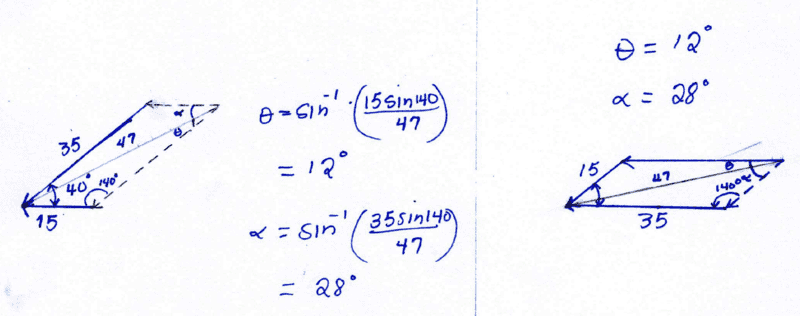 35
47
α
θ
40°
140°
15
θ = sin⁻¹ · (15 sin 140 / 47)
= 12°
α = sin⁻¹ (35 sin 140 / 47)
= 28°
θ = 12°
α = 28°
15
47
θ
140°
α
35